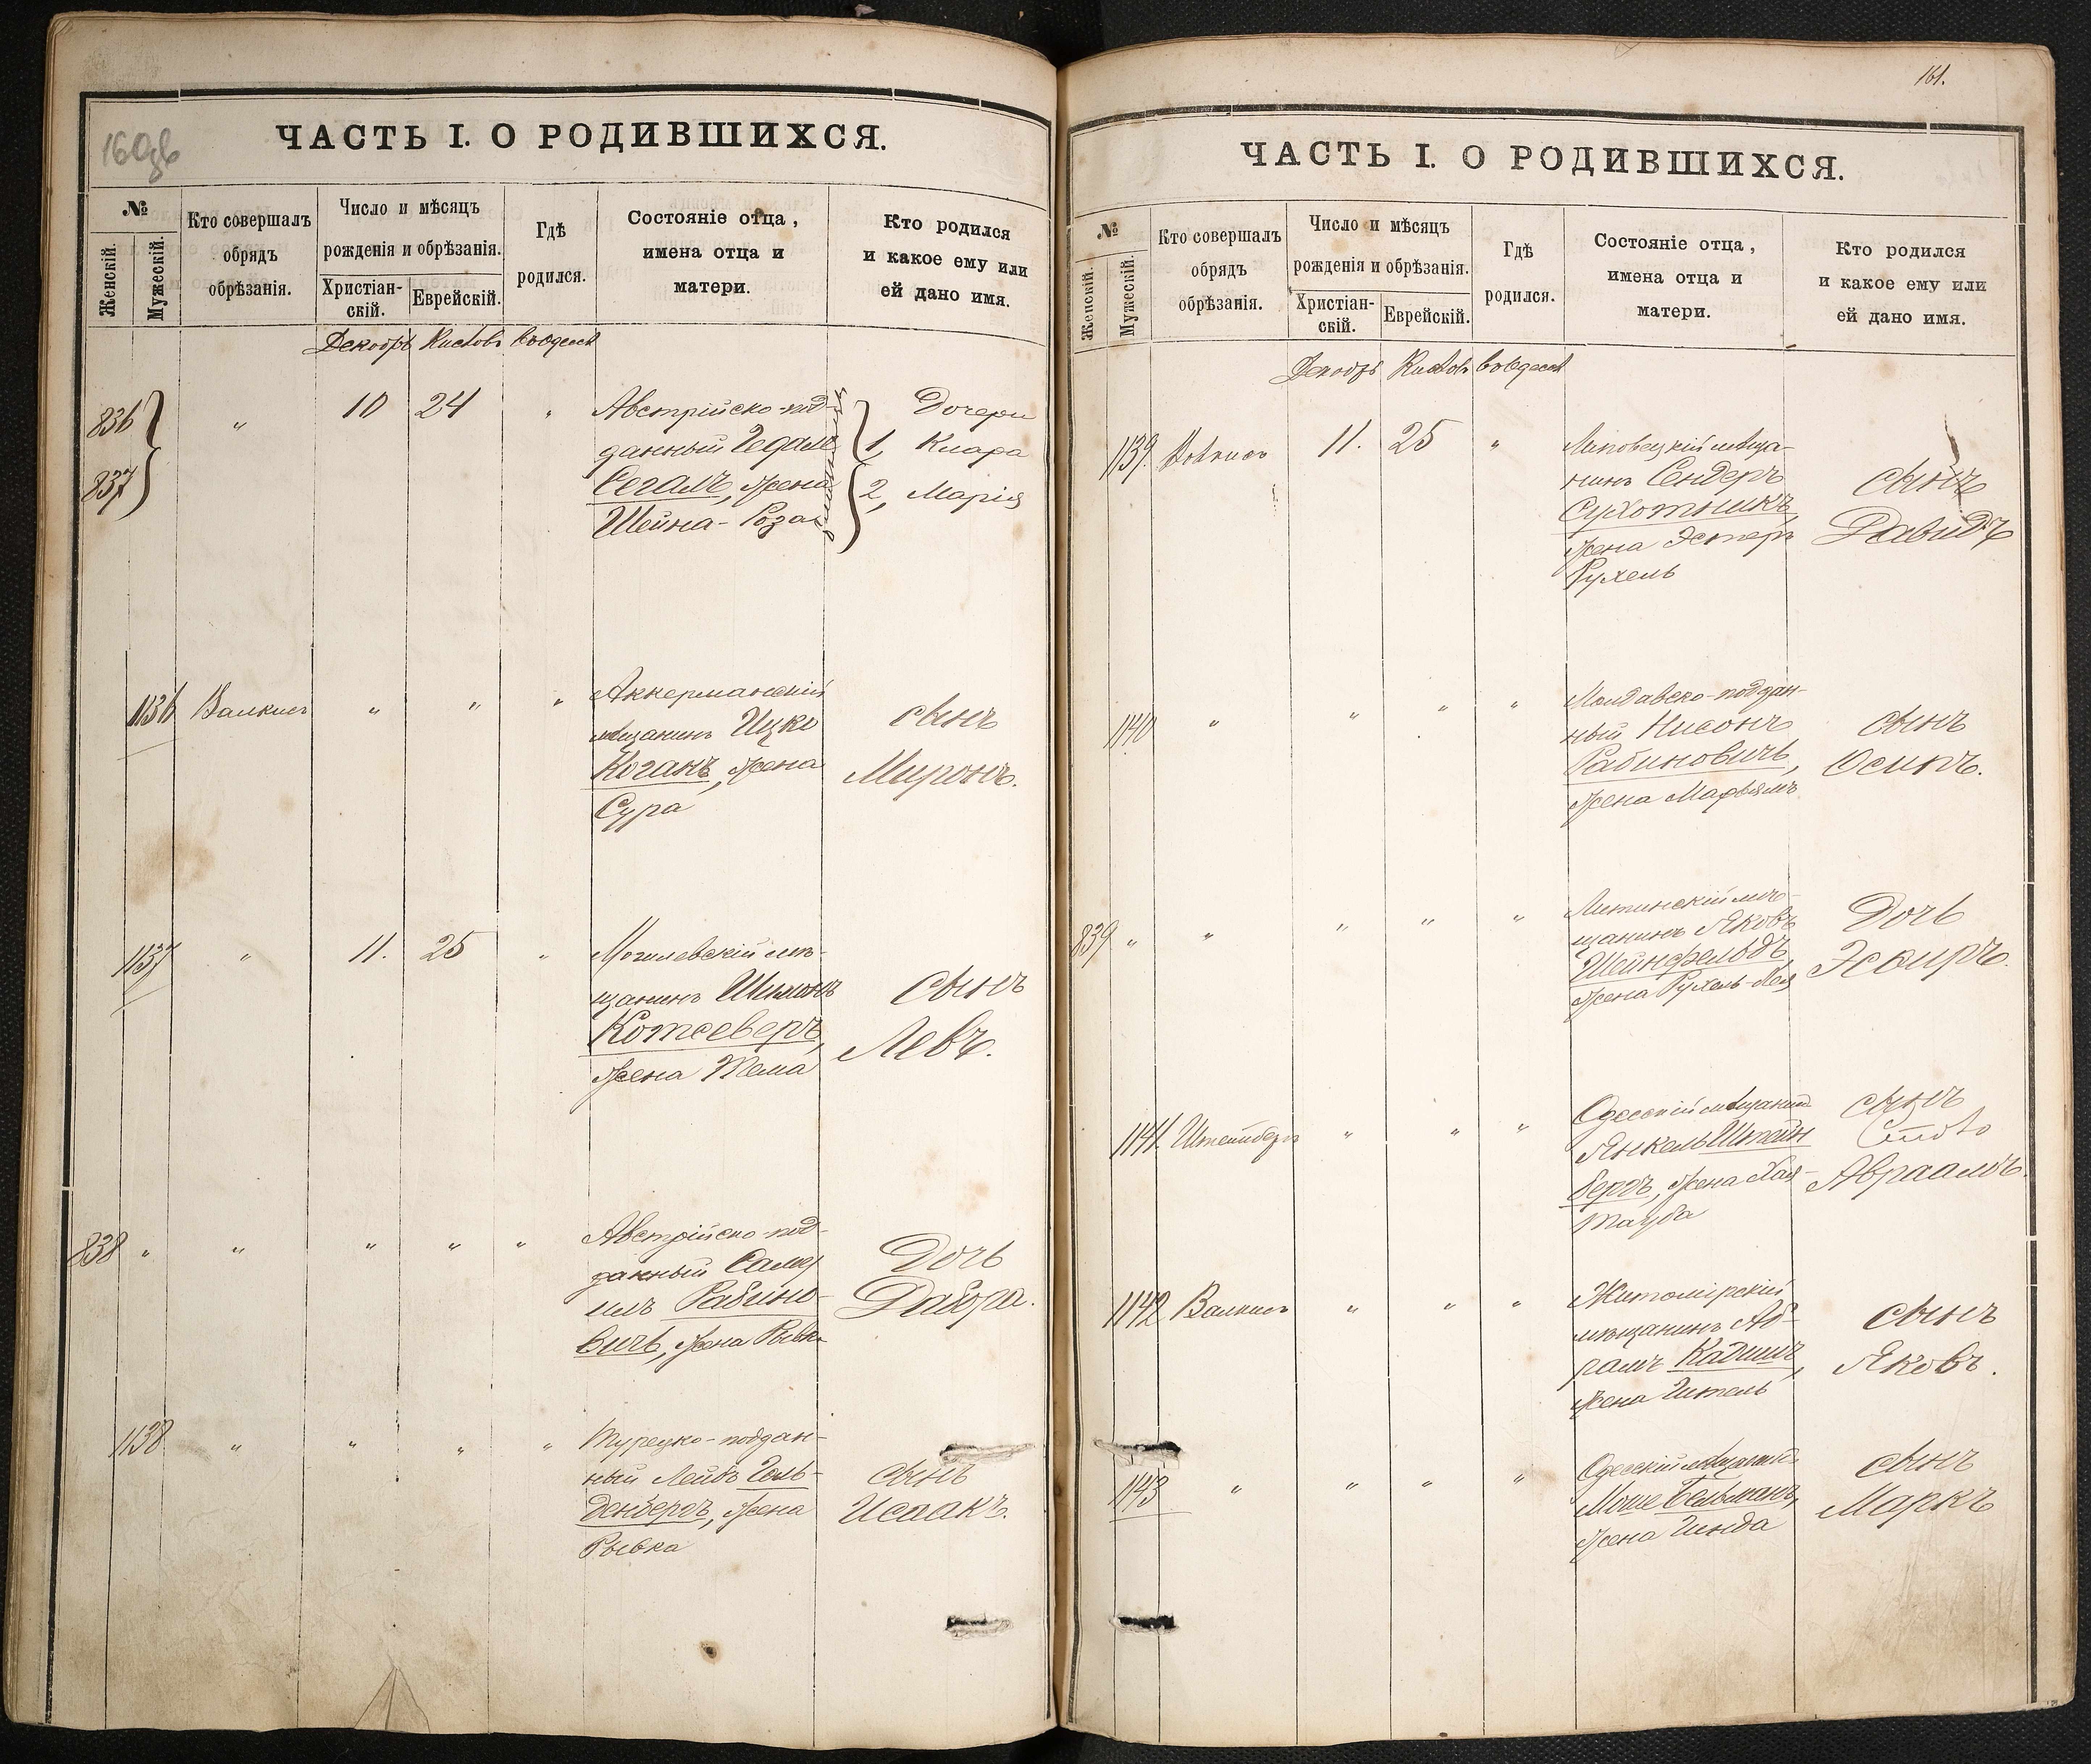 160об
ЧАСТЬ I. О РОДИВШИХСЯ.
№
Женскій.
Мужескій.
Кто совершалъ
обрядъ
обрѣзанія.
Число и мѣсяцъ
рожденія и обрѣзанія.
Христіан-
скій.
Еврейскій.
Гдѣ
родился.
Состояніе отца,
имена отца и
матери.
Кто родился
и какое ему или
ей дано имя.
Декабрь Кислевъ въ Одессѣ
836
837
„ 10 24 „
Австрійско-под-
данный Гедаль
Сегалъ, жена
Шейна-Роза
Дочери
1, Клара
2, Марія
1136 Валкисъ „ „ „
Аккерманскій
мѣщанинъ Ицко
Коганъ, жена
Сура
сынъ
Миронъ.
1137 „ 11. 25 „
Могилевскій мѣ-
щанинъ Шимонъ
Котсеверъ,
жена Тема
сынъ
Левъ.
838 „ „ „ „ „
Австрійско-под-
данный Саму
илъ Рабино-
вичъ, жена Рывка
Дочь
Дабора.
1138 „ „ „ „
Турецко-поддан-
ный Лейбъ Голь-
денбергъ, жена
Рывка
сынъ
Исаакъ.
161.
ЧАСТЬ I. О РОДИВШИХСЯ.
№
Женскій.
Мужескій.
Кто совершалъ
обрядъ
обрѣзанія.
Число и мѣсяцъ
рожденія и обрѣзанія.
Христіан-
скій.
Еврейскій.
Гдѣ
родился.
Состояніе отца,
имена отца и
матери.
Кто родился
и какое ему или
ей дано имя.
Декабрь Кислевъ въ Одессѣ
1139. 11. 25 „
Липовецкій мѣща-
нинъ Сендеръ
Сухотникъ,
жена Эстеръ
Рухель
сынъ
Давидъ
1140 „ „ „ „
Молдавско-поддан-
ный Нисонъ
Рабиновичъ,
жена Марьямъ
сынъ
Осипъ.
839 „ „ „ „ „
Литинскій мѣ-
щанинъ Яковъ
Шейнфельдъ,
жена Рухель-Лея
Дочь
Эсѳирь.
1141. Штейнбергъ „ „ „
Одесскій мѣщанинъ
Янкель Штейн
бергъ, жена Хая-
Тауба
сынъ
Авраамъ.
1142 Валкисъ „ „ „
Житомірскій
мѣщанинъ Аб-
рамъ Кадишъ,
жена Гитель
сынъ
Яковъ.
1143 „ „ „ „
Одесскій мѣщанинъ
Моше Бельманъ,
жена Гинда
сынъ
Маркъ